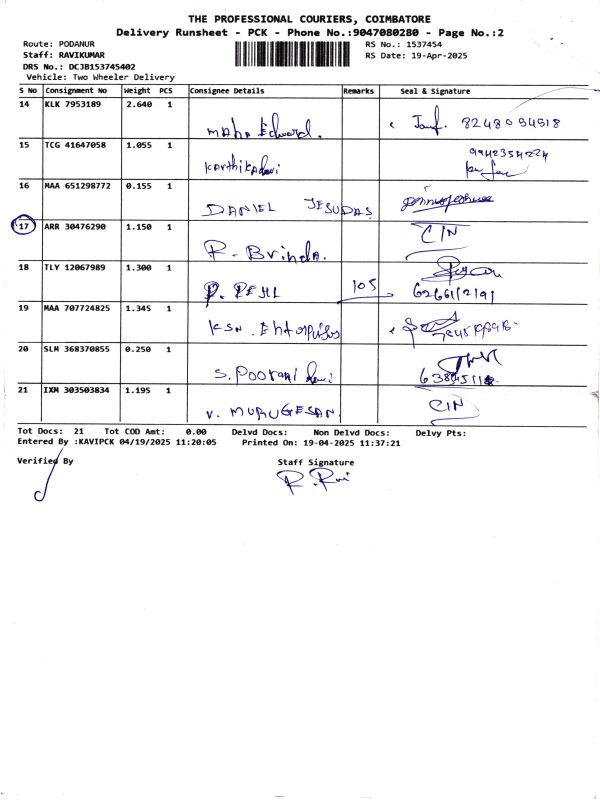 THE PROFESSIONAL COURIERS, COIMBATORE
Delivery Runsheet - PCK - Phone No.:9047080280 - Page No.:2
Route: PODANUR
RS No.: 1537454
Staff: RAVIKUMAR
RS Date: 19-Apr-2025
DRS No.: DCJB153745402
Vehicle: Two Wheeler Delivery
S No Consignment No Weight PCS Consignee Details Remarks Seal & Signature
14 KLK 7953189 2.640 1
Maha Edward. 8248054518
15 TCG 41647058 1.055 1
Karthikadevi 9942354224
16 MAA 651298772 0.155 1
DANIEL JESUDAS
17 ARR 30476290 1.150 1
R. Brinda. CIN
18 TLY 12067989 1.300 1
105
19 MAA 707724825 1.345 1
KSN.
20 SLM 368370855 0.250 1
S. Poorani Devi
21 IXM 303503834 1.195 1
V. MURUGESAN CIN
Tot Docs: 21 Tot COD Amt: 0.00 Delvd Docs: Non Delvd Docs: Delvy Pts:
Entered By :KAVIPCK 04/19/2025 11:20:05 Printed On: 19-04-2025 11:37:21
Verified By
Staff Signature
R. Ravi